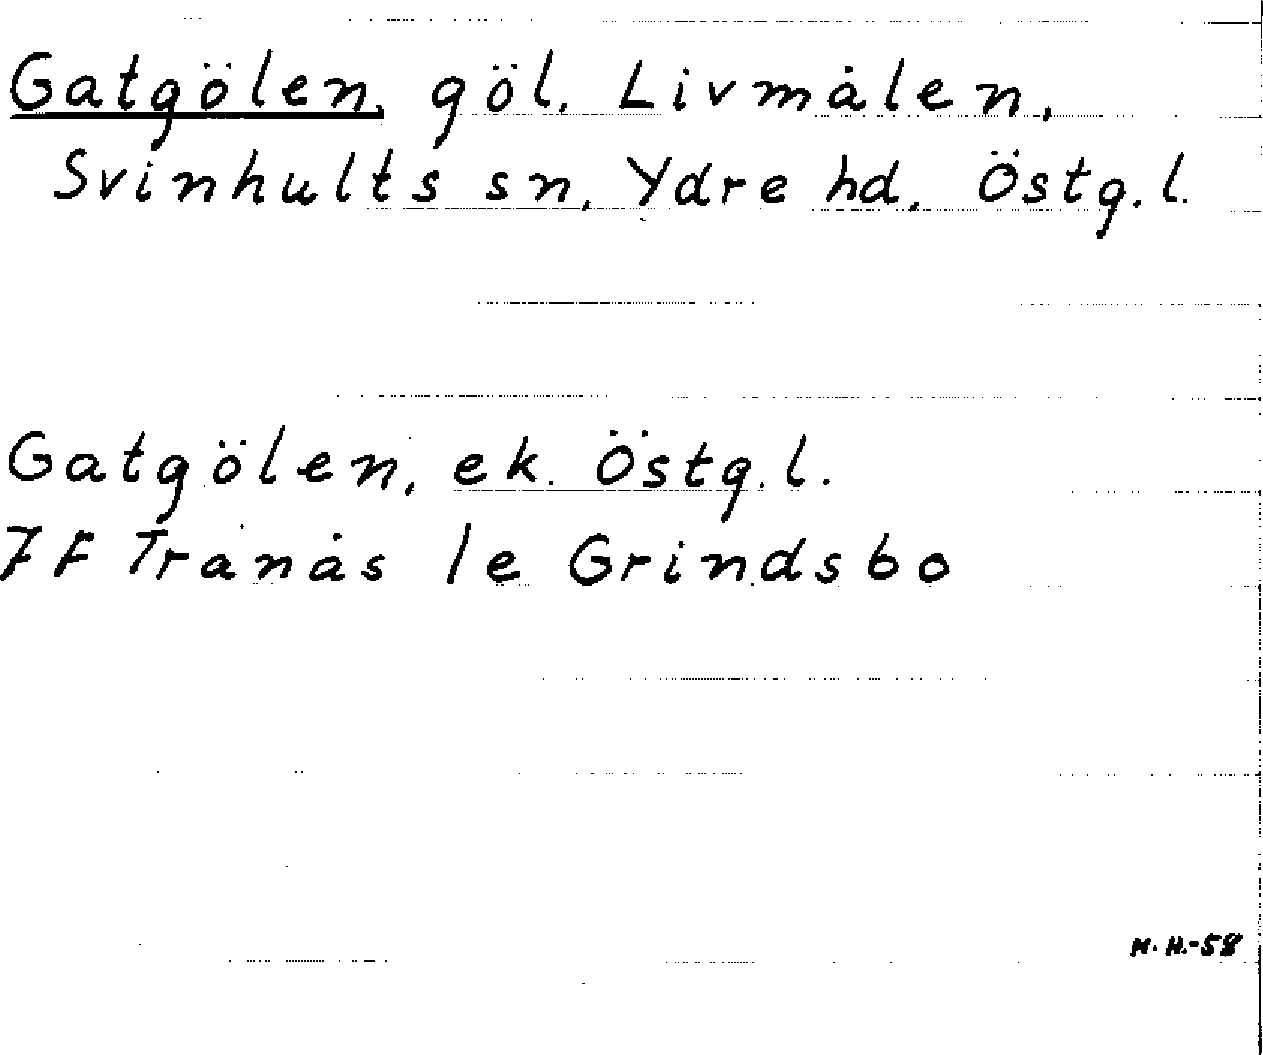 Gatgölen, göl, Livmålen,
Svinhults sn, Ydre hd, Östg.l.
Gatgölen, ek. Östg.l.
7F Tranås 1e Grindsbo
M.H.-58